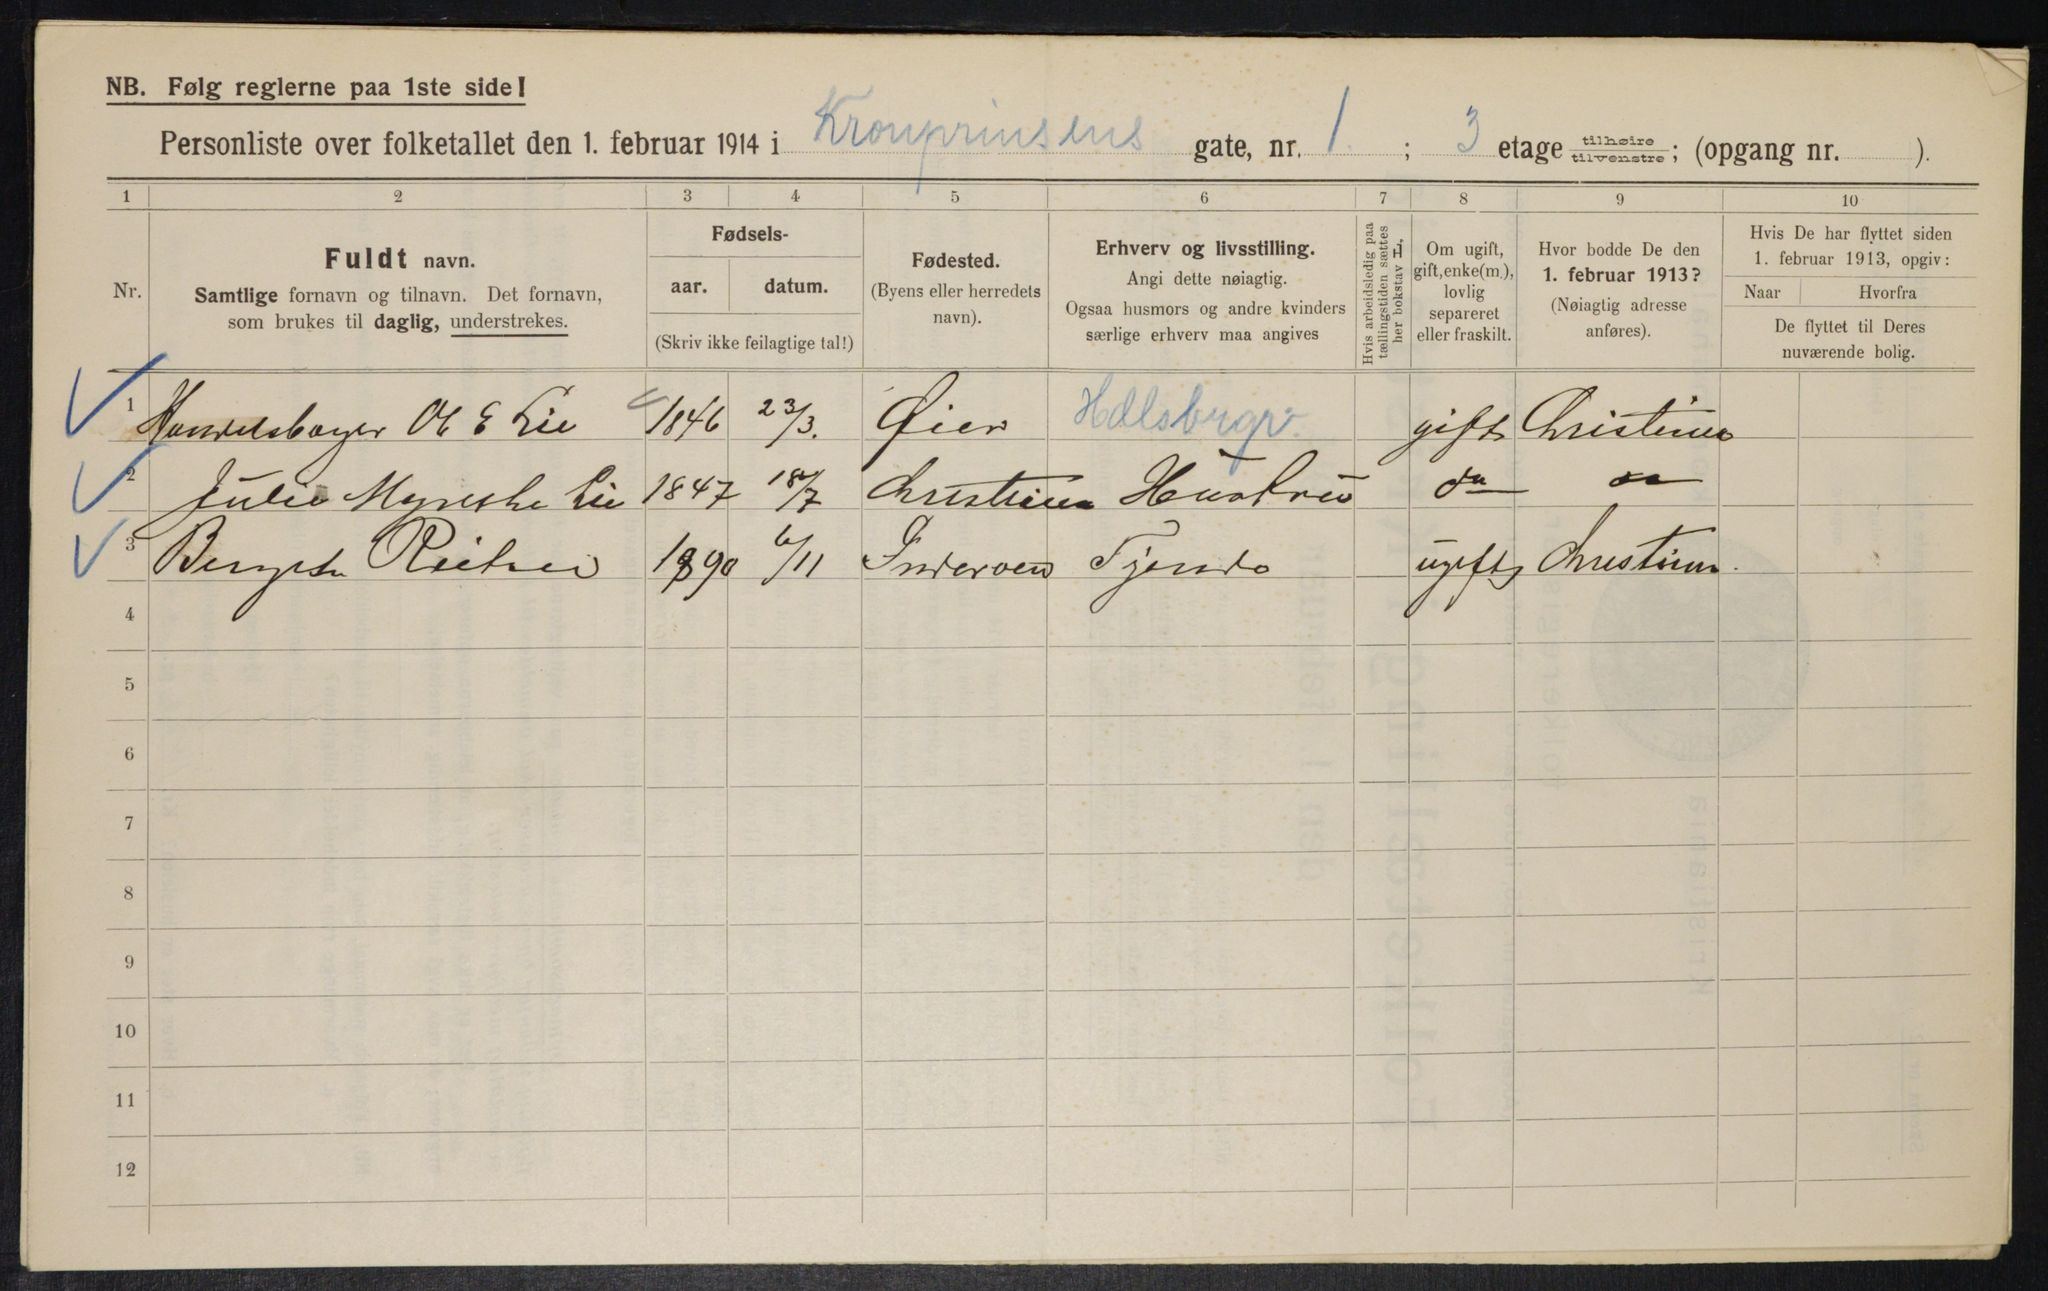 NB. Følg reglerne paa 1ste side!
Personliste over folketallet den 1. februar 1914 i Kronprinsens gate, nr. 1 ; 3 etage tilhøire/tilvenstre; (opgang nr. ).
1 2 3 4 5 6 7 8 9 10
Nr.
Fuldt navn.
Samtlige fornavn og tilnavn. Det fornavn,
som brukes til daglig, understrekes.
Fødsels-
aar. datum.
(Skriv ikke feilagtige tal!)
Fødested.
(Byens eller herredets
navn).
Erhverv og livsstilling.
Angi dette nøiagtig.
Ogsaa husmors og andre kvinders
særlige erhverv maa angives
Hvis arbeidsledig paa
tællingstiden sættes
her bokstav L.
Om ugift,
gift, enke(m.),
lovlig
separeret
eller fraskilt.
Hvor bodde De den
1. februar 1913?
(Nøiagtig adresse
anføres).
Hvis De har flyttet siden
1. februar 1913, opgiv:
Naar Hvorfra
De flyttet til Deres
nuværende bolig.
1 Handelsborger Ol E Lie 1846 23/3. Øier Hdlsbrgr. gift Christiania
2 Julie Lie 1847 18/7 Christiania Hustru do do
3 1890 6/11 Inderøen Tjende ugift Christiania
4
5
6
7
8
9
10
11
12